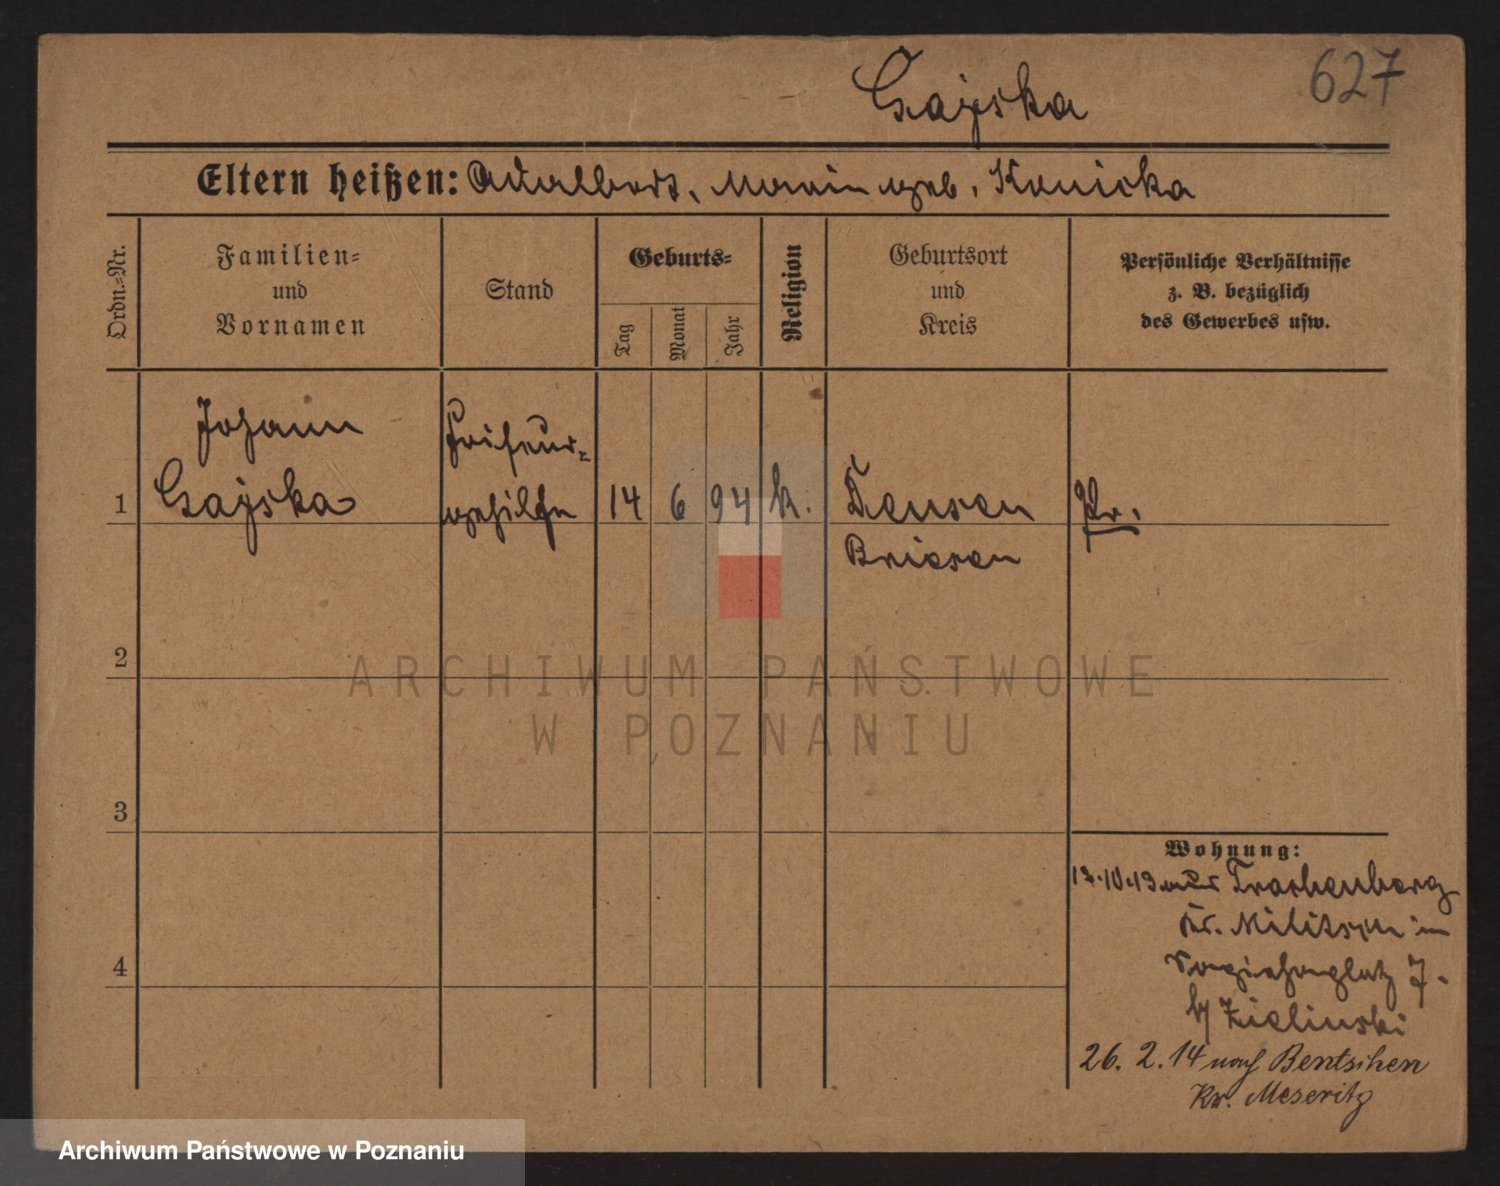 Gayska
627
Eltern heißen: Adalbert, Marie geb. Konicka
Ordn.-Nr.
Familien-
und
Vornamen
Stand
Geburts-
Tag
Monat
Jahr
Religion
Geburtsort
und
Kreis
Persönliche Verhältnisse
z. B. bezüglich
des Gewerbes usw.
Johann
Gayska
Friseur-
gehilfe
1
14 6 94 k.
Briesen
Pr.
2
ARCHIWUM PAŃSTWOWE
W POZNANIU
3
Wohnung:
13 Trachenberg
Kr. Militsch in
7.
b/ Zielinski
4
26. 2. 14 nach Bentschen
Kr. Meseritz
Archiwum Państwowe w Poznaniu